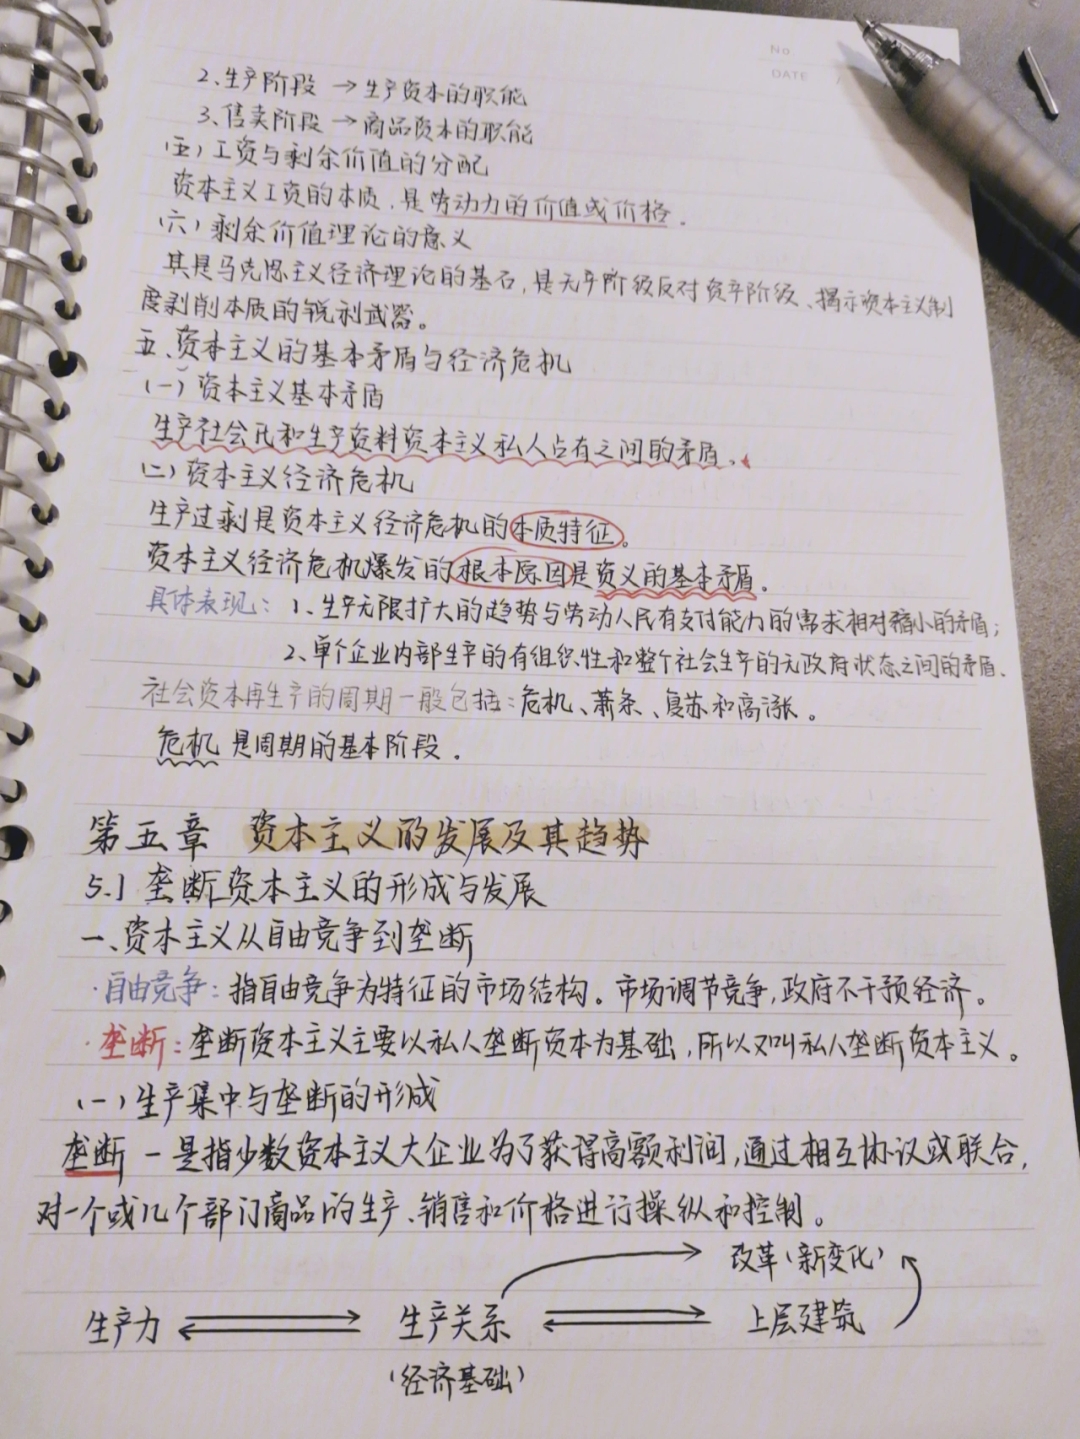 No
DATE
2、生产阶段 → 生产资本的职能
3、售卖阶段 → 商品资本的职能
(五)工资与剩余价值的分配
资本主义工资的本质,是劳动力的价值或价格.
(六)剩余价值理论的意义
其是马克思主义经济理论的基石,是无产阶级反对资产阶级、揭示资本主义制
度剥削本质的锐利武器。
五、资本主义的基本矛盾与经济危机
(一)资本主义基本矛盾
生产社会化和生产资料资本主义私人占有之间的矛盾.
(二)资本主义经济危机
生产过剩是资本主义经济危机的本质特征。
资本主义经济危机爆发的根本原因是资义的基本矛盾.
具体表现:1、生产无限扩大的趋势与劳动人民有支付能力的需求相对缩小的矛盾;
2、单个企业内部生产的有组织性和整个社会生产的无政府状态之间的矛盾.
社会资本再生产的周期一般包括:危机、萧条、复苏和高涨。
危机是周期的基本阶段.
第五章 资本主义的发展及其趋势
5.1 垄断资本主义的形成与发展
一、资本主义从自由竞争到垄断
·自由竞争:指自由竞争为特征的市场结构。市场调节竞争,政府不干预经济。
·垄断:垄断资本主义主要以私人垄断资本为基础,所以又叫私人垄断资本主义。
(一)生产集中与垄断的形成
垄断 — 是指少数资本主义大企业为了获得高额利润,通过相互协议或联合,
对一个或几个部门商品的生产、销售和价格进行操纵和控制。
改革(新变化)
生产力 ⇌ 生产关系 ⇌ 上层建筑
(经济基础)